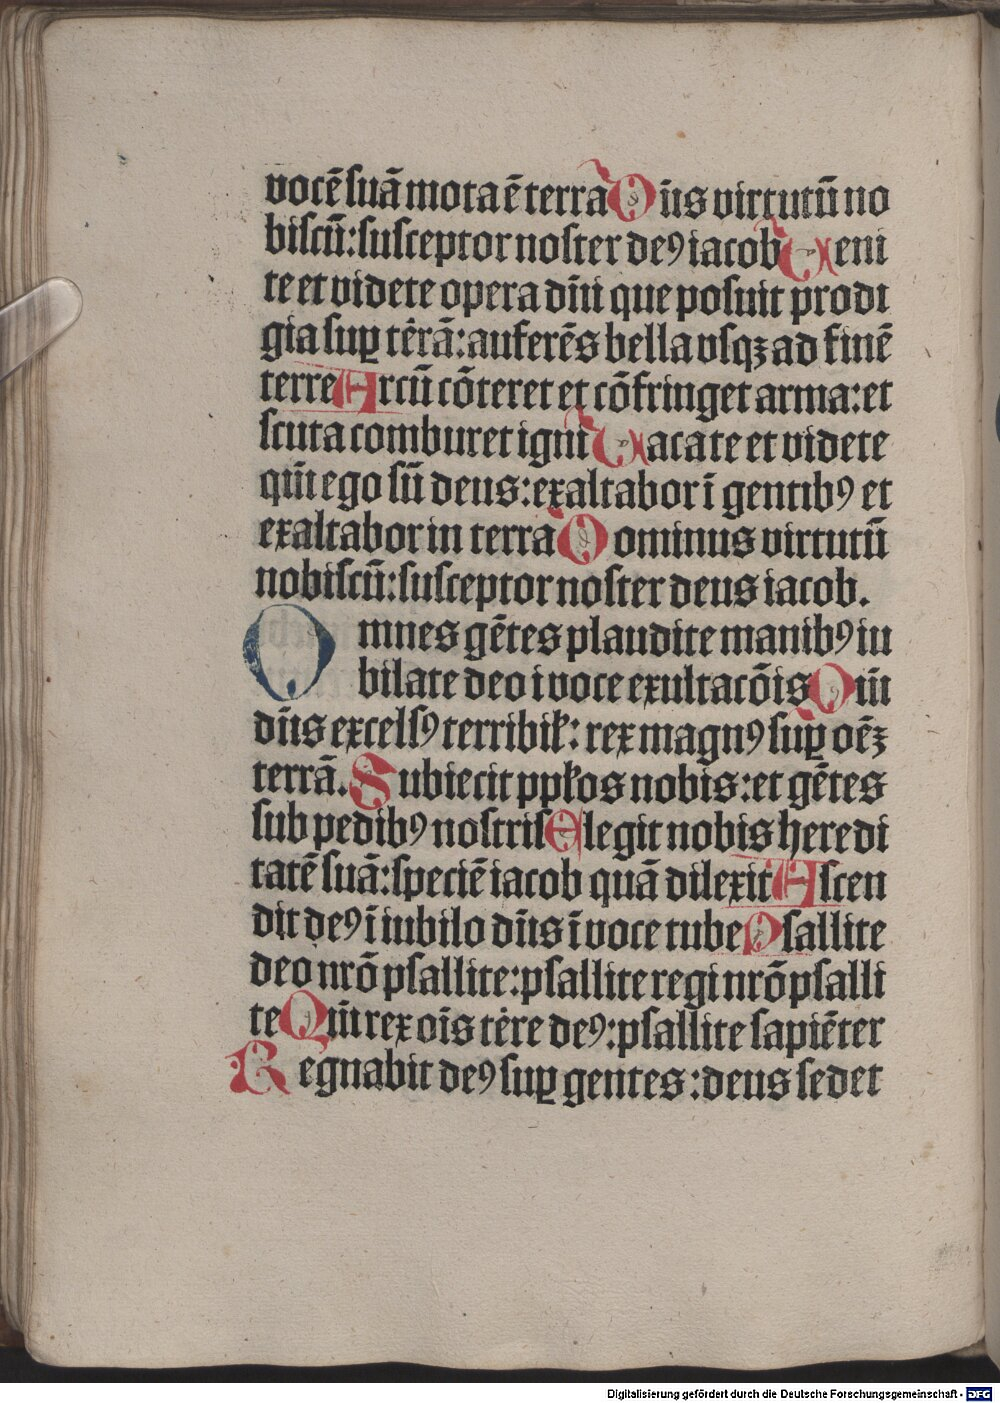 vocē suā mota ē terra Dn̄s virtutū no
biscū: susceptor noster deꝰ iacob Veni
te et videte opera dn̄i que posuit prodi
gia suꝑ tērā: auferēs bella vsqꝫ ad finē
terre Arcū cōteret et cōfringet arma: et
scuta comburet igni Vacate et videte
qm̄ ego sū deus: exaltabor ī gentibꝰ et
exaltabor in terra Dominus virtutū
nobiscū: susceptor noster deus iacob.
Omnes gētes plaudite manibꝰ iu
bilate deo i voce exultacōis Qm̄
dn̄s excelsꝰ terribil̄: rex magnꝰ suꝑ oēꝫ
terrā. Subiecit ppl̄os nobis: et gētes
sub pedibꝰ nostris Elegit nobis heredi
tatē suā: speciē iacob quā dilexit Ascen
dit deꝰ ī iubilo dn̄s ī voce tube Psallite
deo nrō psallite: psallite regi nrō psalli
te Qm̄ rex oīs tēre deꝰ: psallite sapiēter
Regnabit deꝰ suꝑ gentes: deus sedet
Digitalisierung gefördert durch die Deutsche Forschungsgemeinschaft - DFG